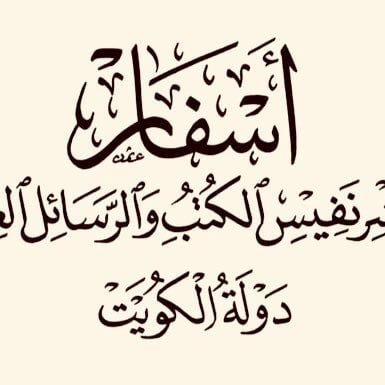 أسفار
نفيس الكتب والرسائل
دولة الكويت